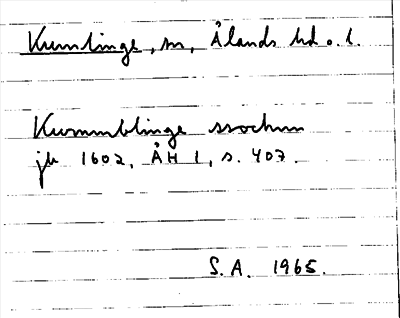 Kumlinge, sn, Ålands hd o. l.
Kummblinge srochnn
jb 1602, ÅH 1, s. 407.
S.A. 1965.